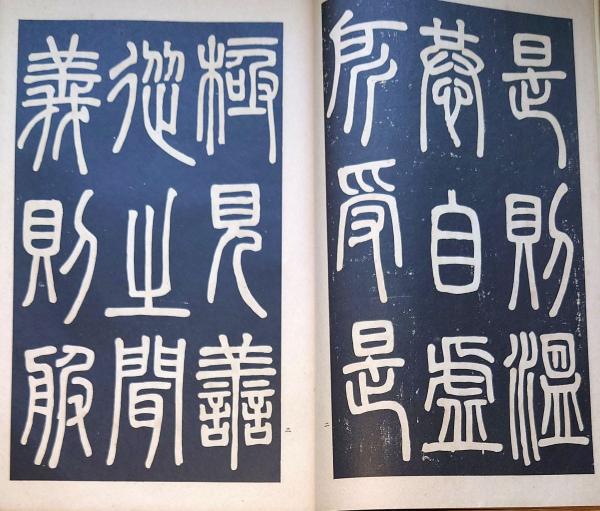 是則溫
恭自虛
所受是
二
三
極見善
從之聞
義則服